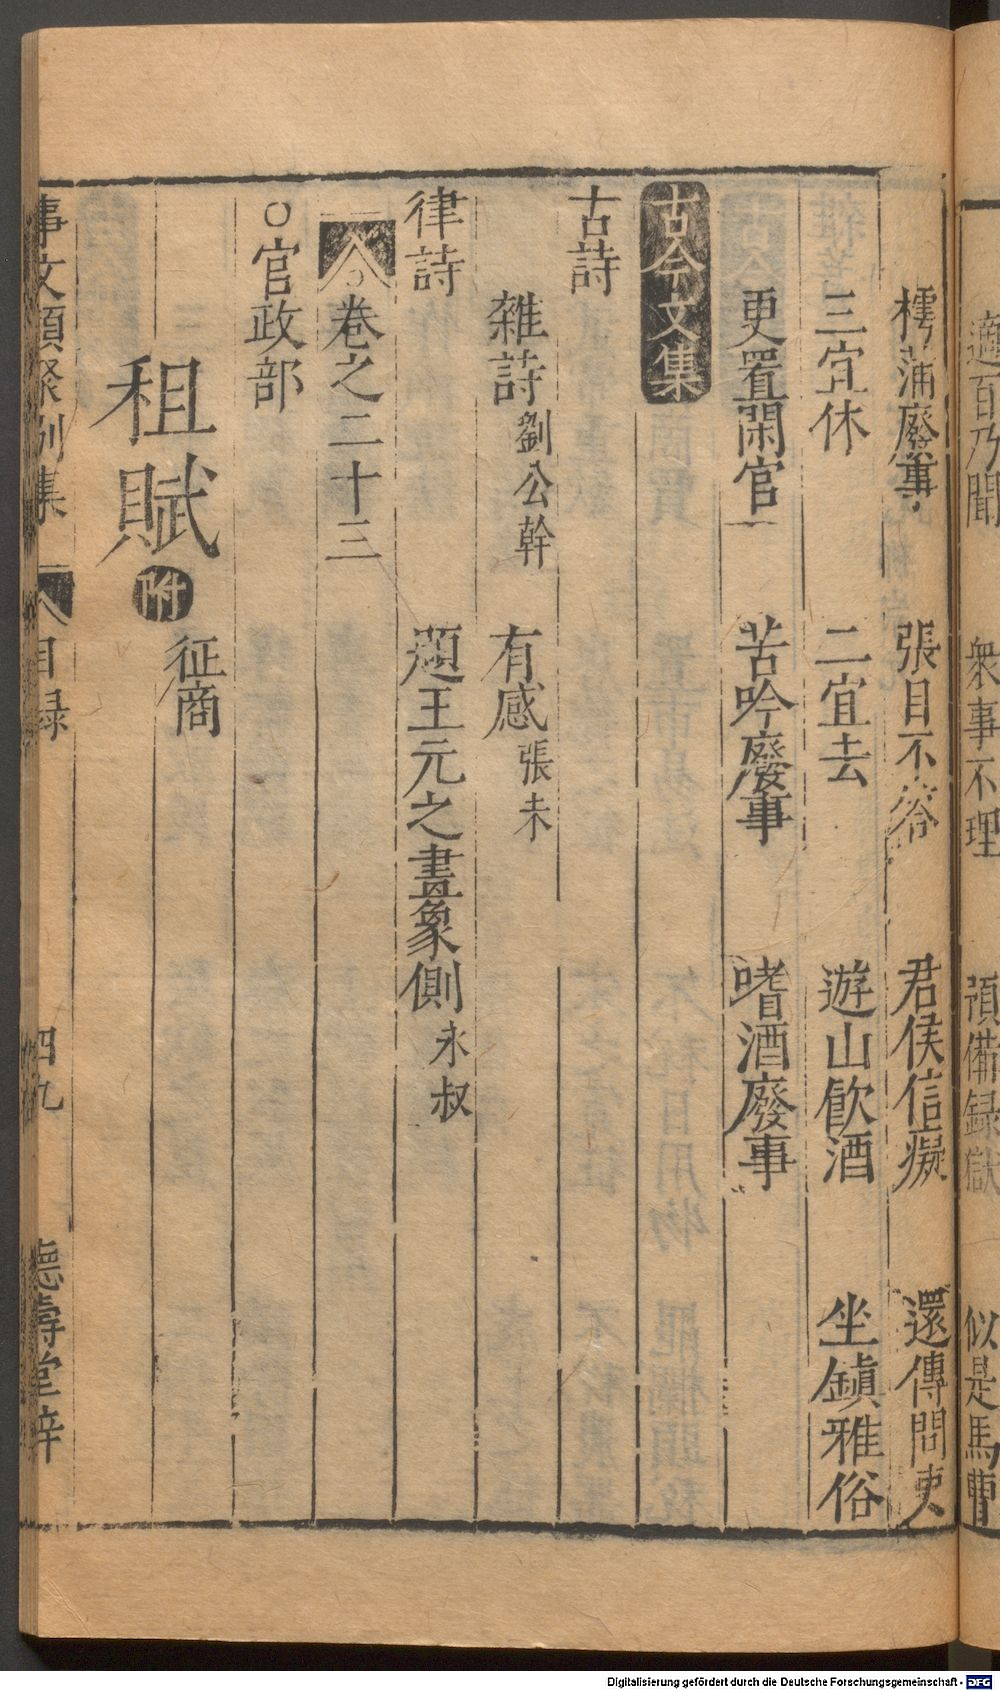 適百乃聞 衆事不理 預備録獄 似是馬曹
樗蒲廢事 張目不答 君侯信癡 還傳問吏
三宜休 二宜去 遊山飲酒 坐鎮雅俗
更置閑官 苦吟廢事 嗜酒廢事
古今文集
古詩
雜詩劉公幹 有感張耒
律詩
題王元之畫象側永叔
卷之二十三
○官政部
租賦附征商
事文類聚別集 目録 四九 德壽堂梓
Digitalisierung gefördert durch die Deutsche Forschungsgemeinschaft - DFG